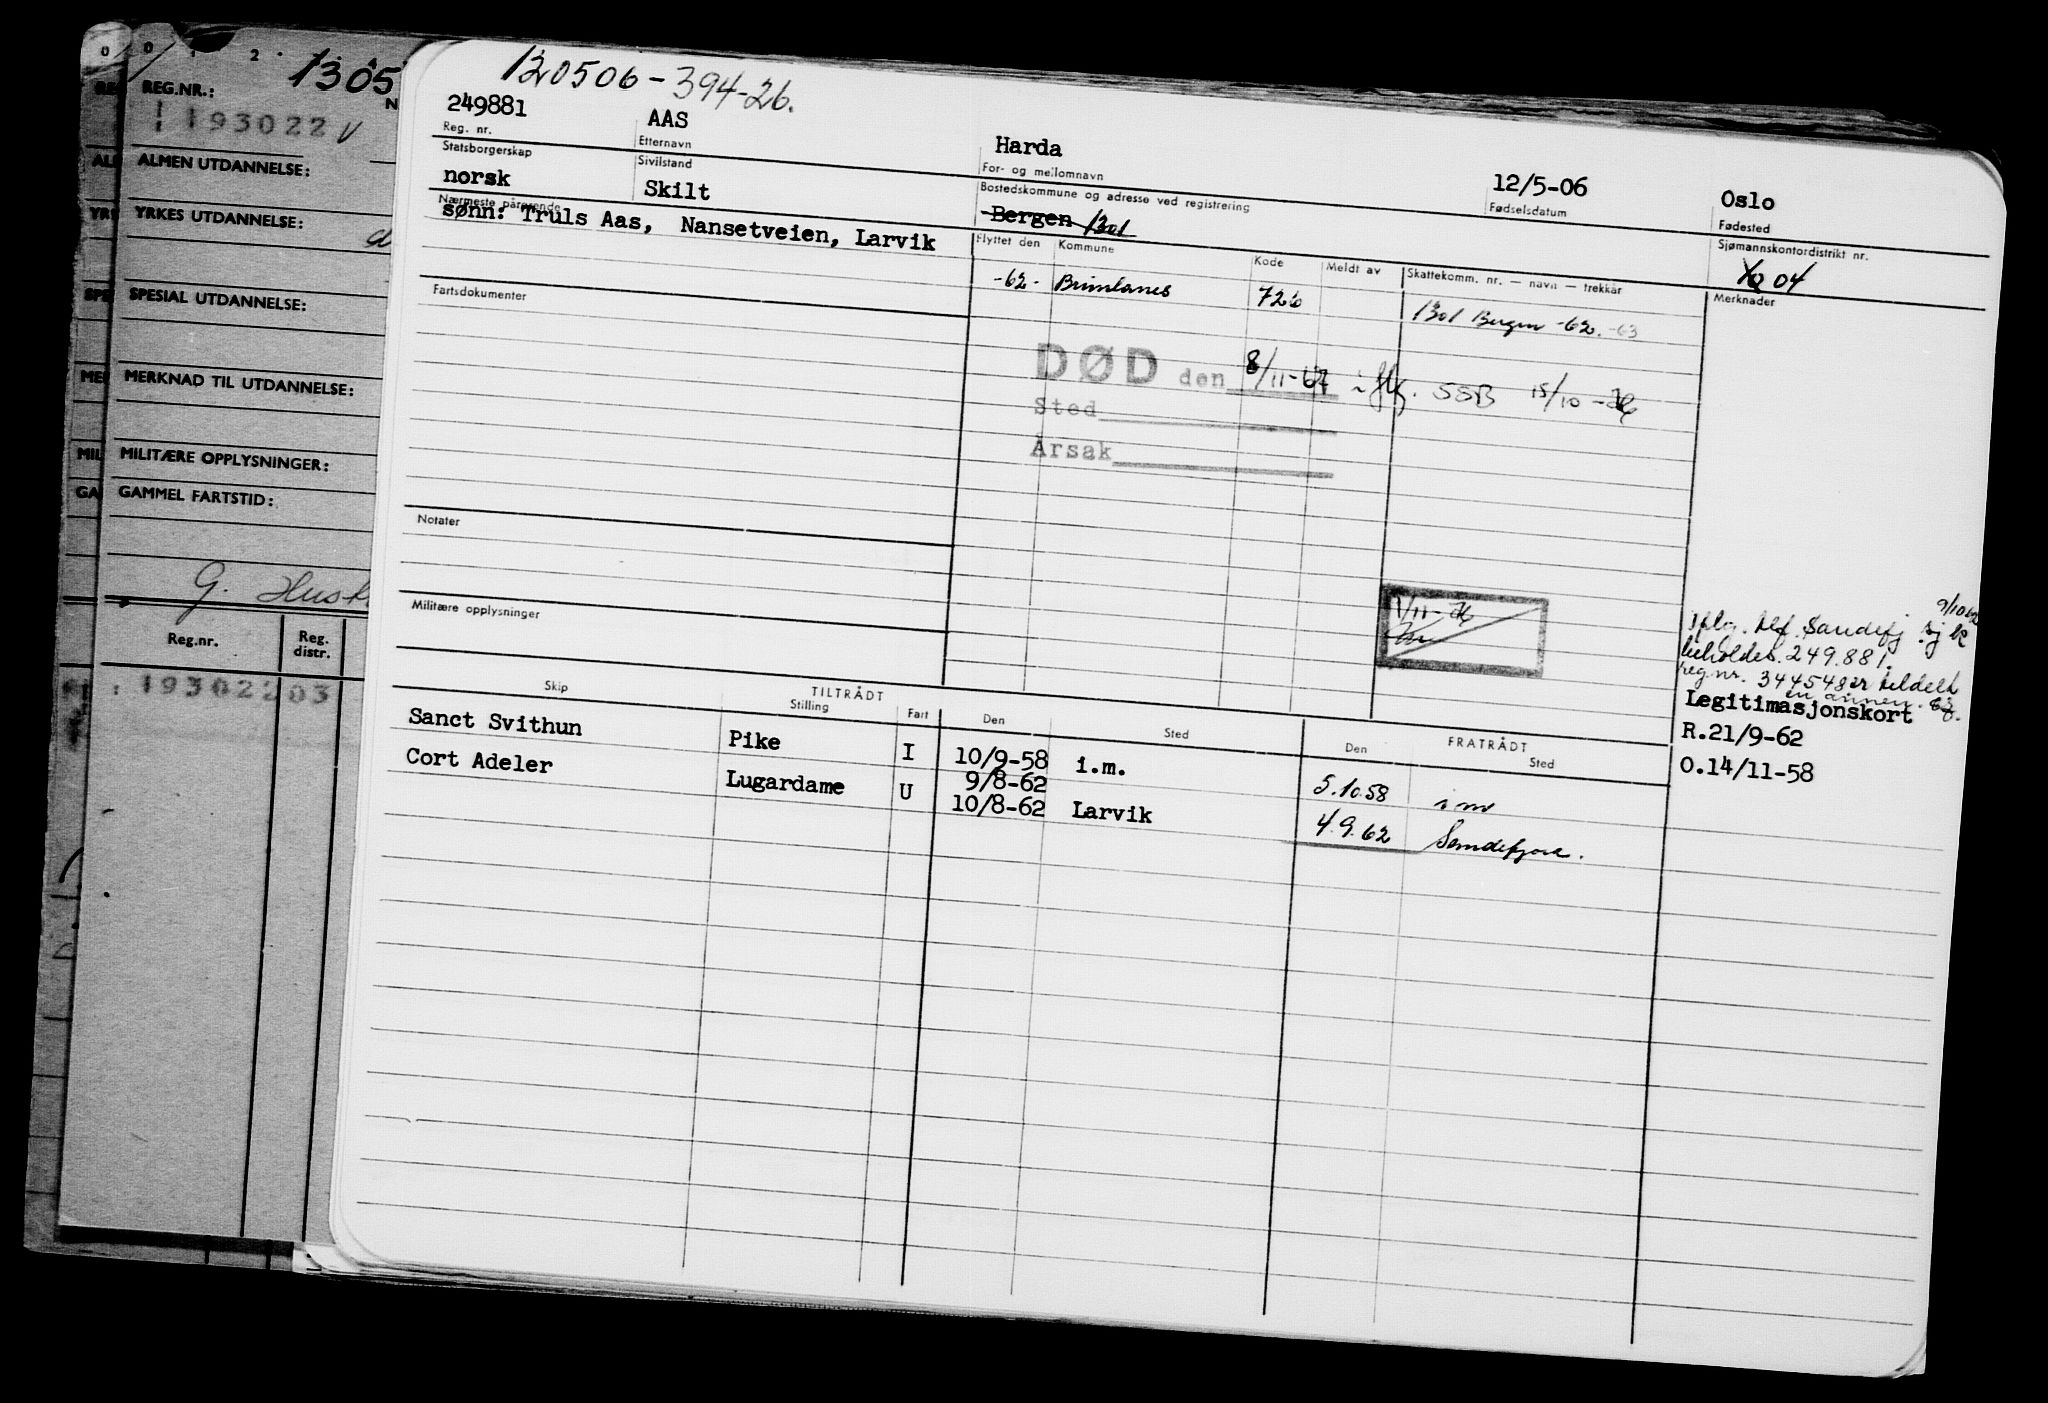 0 0 1 2
1305
REG.NR.:
193022
ALMEN UTDANNELSE:
YRKES UTDANNELSE:
SPESIAL UTDANNELSE:
MERKNAD TIL UTDANNELSE:
MILITÆRE OPPLYSNINGER:
GAMMEL FARTSTID:
G.
Reg.nr. Reg. distr.
193022 03
120506-394-26.
249881 AAS Harda 12/5-06 Oslo
Reg. nr. Etternavn For- og mellomnavn Fødselsdatum Fødested
Statsborgerskap Sivilstand Bostedskommune og adresse ved registrering Sjømannskontordistrikt nr.
norsk Skilt Bergen 1301 04
Nærmeste pårørende
sønn: Truls Aas, Nansetveien, Larvik
Flyttet den Kommune Kode Meldt av Skattekomm. nr. — navn — trekkår Merknader
-62- Brunlanes 726 1301 Bergen -62. -63
Fartsdokumenter
DØD den 8/11-67 ifлg. SSB 15/10-76
Sted
Årsak
Notater
1/11-76
Militære opplysninger
9/10
Sandefj.
beholder 249.881.
reg.nr. 344548 er tildelt
en annen sj.
Legitimasjonskort
R.21/9-62
O.14/11-58
TILTRÅDT FRATRÅDT
Skip Stilling Fart Den Sted Den Sted
Sanct Svithun Pike I 10/9-58 i.m. 5.10.58 i m
Cort Adeler Lugardame U 9/8-62
10/8-62 Larvik 4.9.62 Sandefjord.